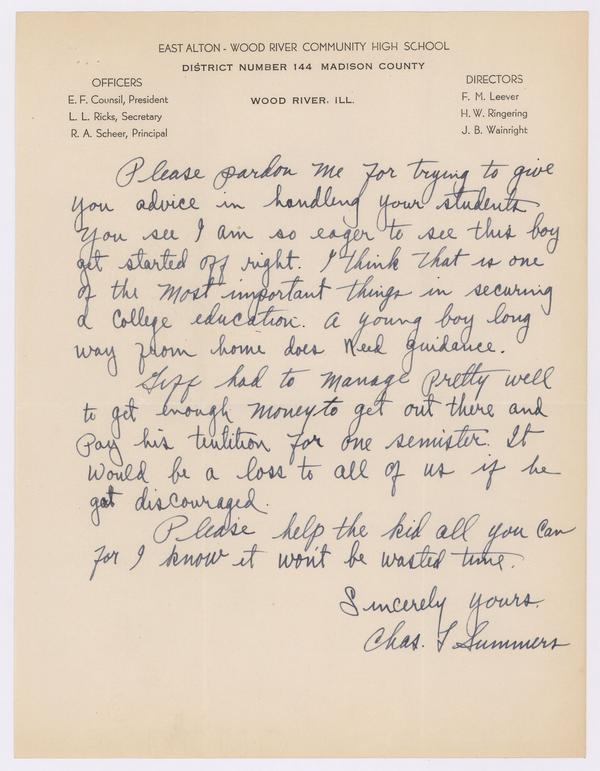 EAST ALTON - WOOD RIVER COMMUNITY HIGH SCHOOL
DISTRICT NUMBER 144 MADISON COUNTY
OFFICERS
E. F. Counsil, President
L. L. Ricks, Secretary
R. A. Scheer, Principal
WOOD RIVER, ILL.
DIRECTORS
F. M. Leever
H. W. Ringering
J. B. Wainright
Please pardon me for trying to give
you advice in handling your students
You see I am so eager to see this boy
get started off right. I think that is one
of the most important things in securing
a college education. A young boy long
way from home does need guidance.
Giff had to manage pretty well
to get enough money to get out there and
pay his tuitition for one semister. It
would be a loss to all of us if he
got discouraged.
Please help the kid all you can
for I know it won't be wasted time.
Sincerely yours.
Chas. L Summers